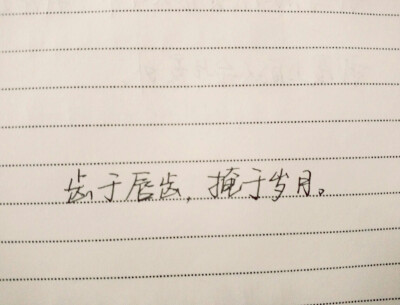 齿于唇齿，掩于岁月。